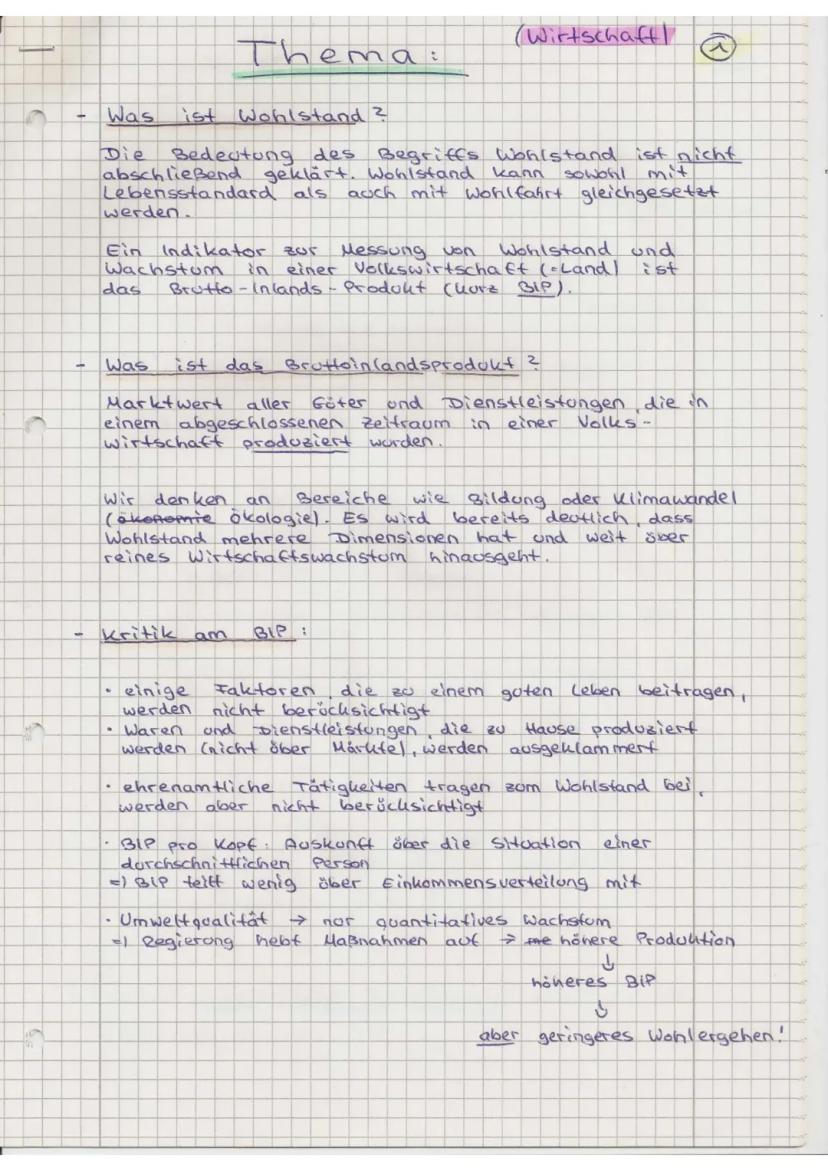 (Wirtschaft)
1
Thema:
- Was ist Wohlstand?
Die Bedeutung des Begriffs Wohlstand ist nicht
abschließend geklärt. Wohlstand kann sowohl mit
Lebensstandard als auch mit Wohlfahrt gleichgesetzt
werden.
Ein Indikator zur Messung von Wohlstand und
Wachstum in einer Volkswirtschaft (=Land) ist
das Brutto-Inlands-Produkt (kurz BIP).
- Was ist das Bruttoinlandsprodukt?
Marktwert aller Güter und Dienstleistungen, die in
einem abgeschlossenen Zeitraum in einer Volks-
wirtschaft produziert wurden.
Wir denken an Bereiche wie Bildung oder Klimawandel
(ökonomie ökologie). Es wird bereits deutlich, dass
Wohlstand mehrere Dimensionen hat und weit über
reines Wirtschaftswachstum hinausgeht.
- Kritik am BIP:
· einige Faktoren, die zu einem guten Leben beitragen,
werden nicht berücksichtigt
· Waren und Dienstleistungen, die zu Hause produziert
werden (nicht über Märkte), werden ausgeklammert
· ehrenamtliche Tätigkeiten tragen zum Wohlstand bei,
werden aber nicht berücksichtigt
· BIP pro Kopf: Auskunft über die Situation einer
durchschnittlichen Person
=) BIP teilt wenig über Einkommensverteilung mit
· Umweltqualität → nur quantitatives Wachstum
=) Regierung hebt Maßnahmen auf → me höhere Produktion
↓
höheres BIP
↓
aber geringeres Wohlergehen!